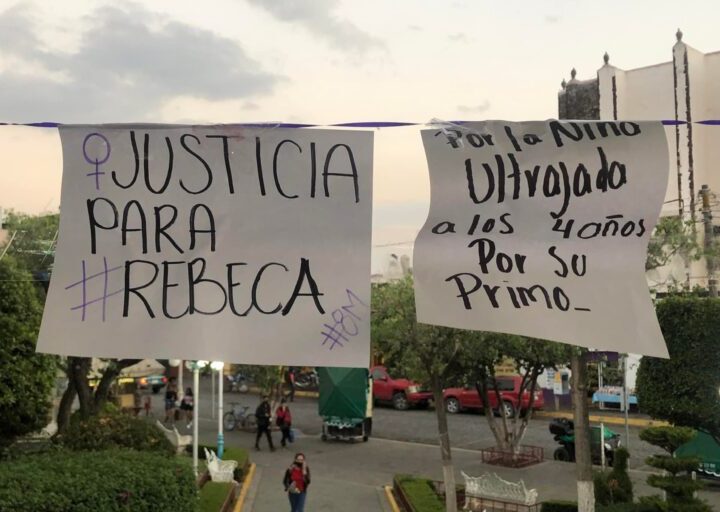 ♀JUSTICIA
PARA
#REBECA
#8M
Por la Niña
Ultrajada
a los 4 años
Por Su
Primo_